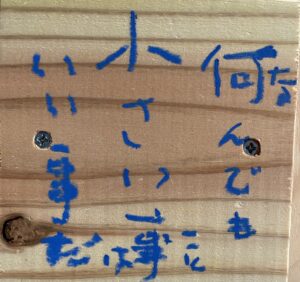 何んでも
小さい事は
いい事だ